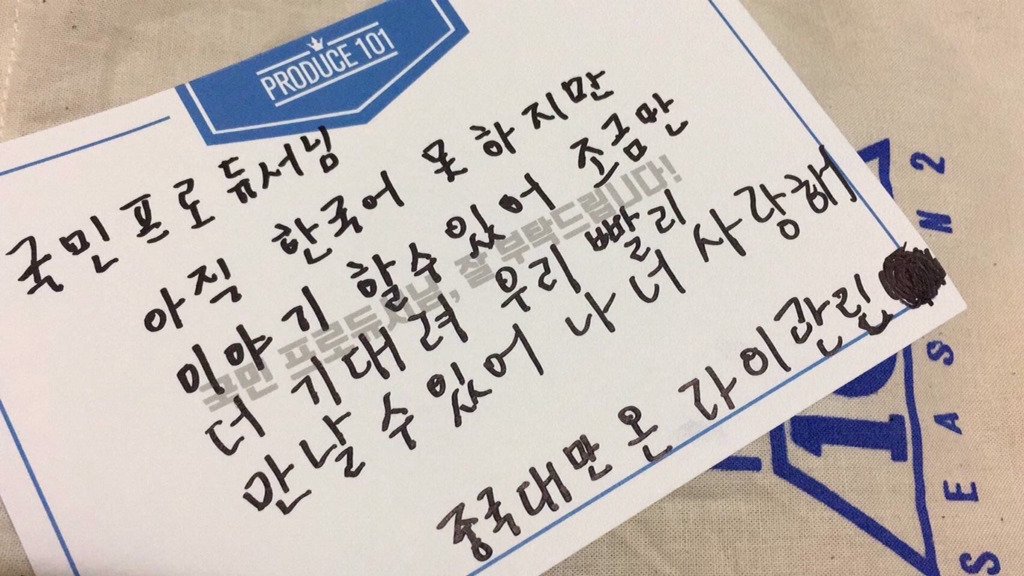 PRODUCE 101
국민 프로듀서님
아직 한국어 못 하지만
이야기 할수있어 조금만
더 기대려 우리 빨리
만날수있어 나 너 사랑해
중국대만 온 라이관린
국민 프로듀서님, 잘 부탁드립니다!
10
SEASN2